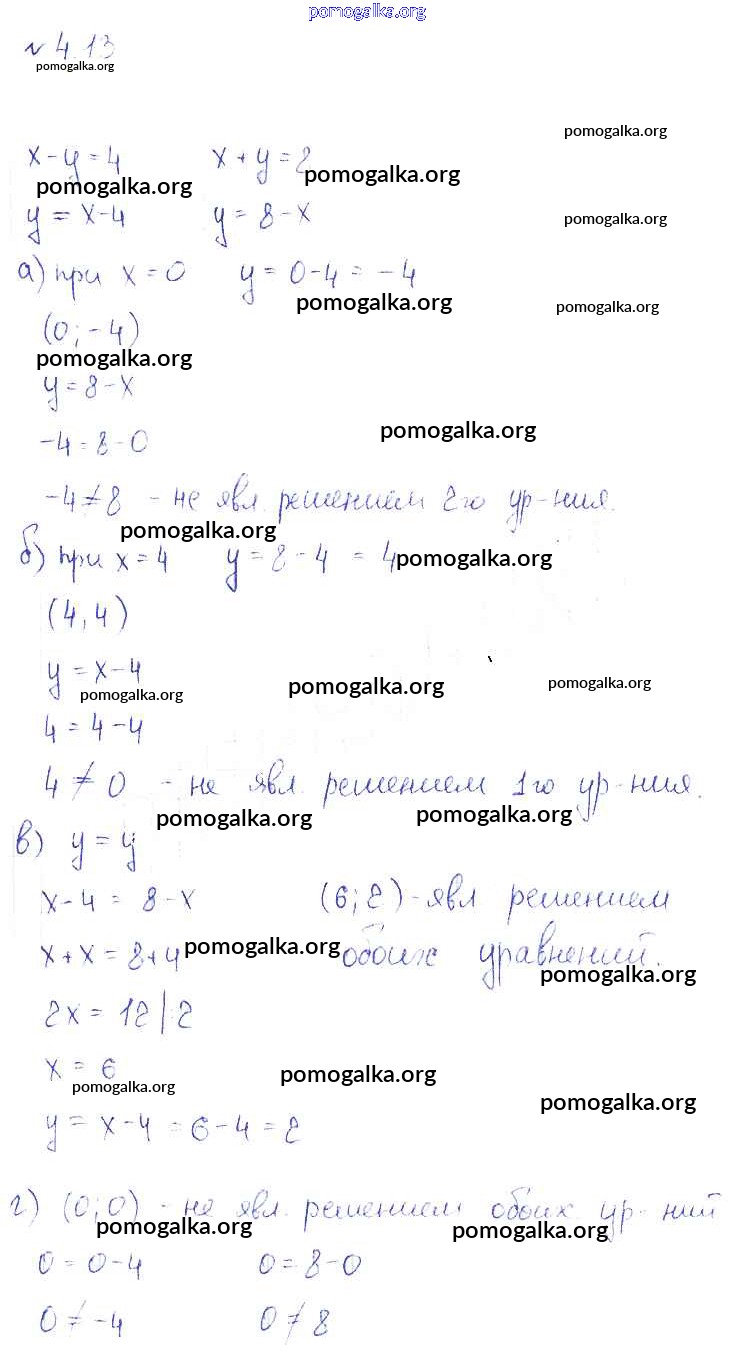 pomogalka.org
№ 4.13
pomogalka.org
pomogalka.org
x-y=4 x+y=8
pomogalka.org pomogalka.org
y = x-4 y = 8-x pomogalka.org
а) при x=0 y= 0-4 = -4
pomogalka.org pomogalka.org
(0; -4)
pomogalka.org
y=8-x
-4=8-0 pomogalka.org
-4≠8 - не явл. решением 2го ур-ния.
pomogalka.org
б) при x=4 y=8-4 = 4 pomogalka.org
(4,4)
y=x-4 pomogalka.org pomogalka.org
pomogalka.org
4=4-4
4≠0 - не явл. решением 1го ур-ния.
pomogalka.org pomogalka.org
в) y=y
x-4 = 8-x (6;2)-явл решением
x+x=8+4 pomogalka.org обоих уравнений.
pomogalka.org
2x=12|:2
x = 6 pomogalka.org
pomogalka.org pomogalka.org
y= x-4 = 6-4=2
г) (0;0) - не явл. решением обоих ур-ний
pomogalka.org pomogalka.org
0=0-4 0=8-0
0≠-4 0≠8